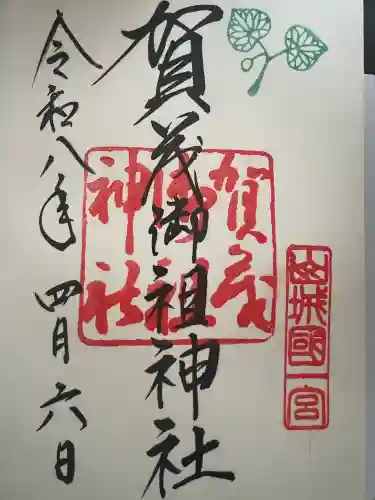 山城國一宮
賀茂御祖神社
賀茂御祖神社
令和八年 四月六日